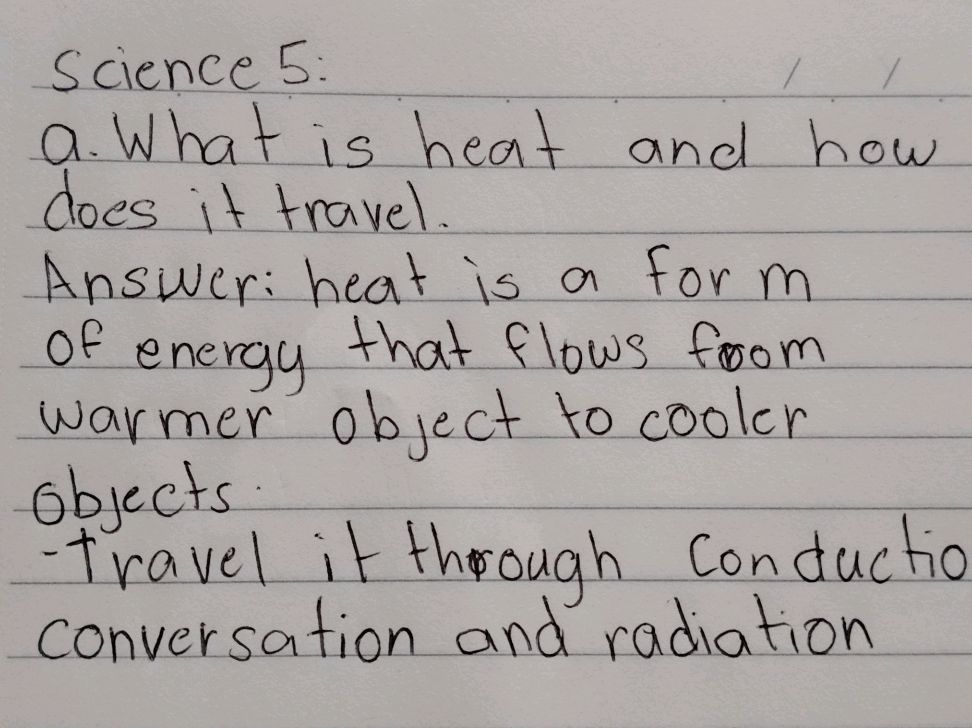 Science 5:
a. What is heat and how
does it travel.
Answer: heat is a for m
of energy that flows from
warmer object to cooler
objects.
-Travel it through Conductio
conversation and radiation